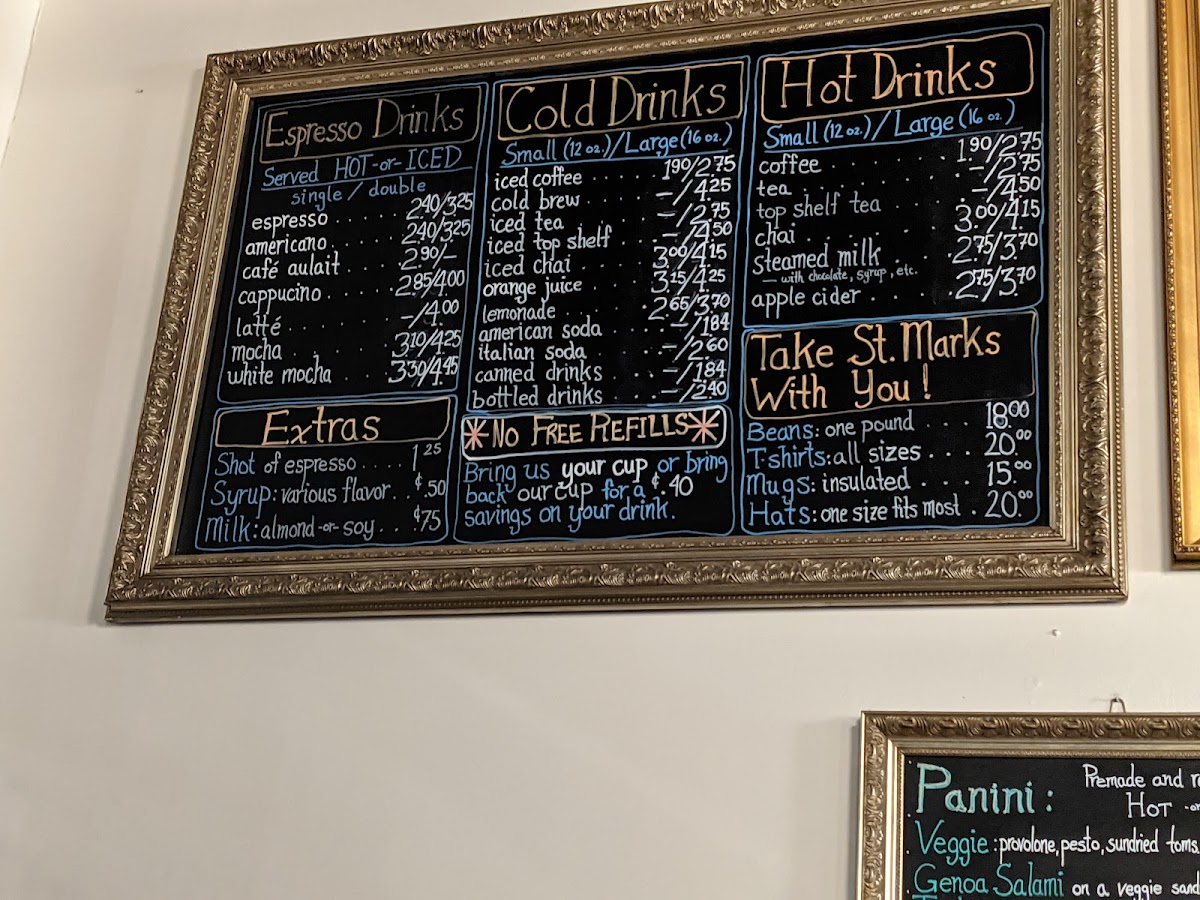 Espresso Drinks
Served HOT -or- ICED
single / double
espresso ..... 2.40/3.25
americano ..... 2.40/3.25
café aulait ..... 2.90/–
cappucino ..... 2.85/4.00
latté ..... –/4.00
mocha ..... 3.10/4.25
white mocha .... 3.30/4.45
Extras
Shot of espresso .... 1.25
Syrup: various flavor .. ¢.50
Milk: almond -or- soy .. ¢75
Cold Drinks
Small (12 oz.) / Large (16 oz.)
iced coffee ..... 1.90/2.75
cold brew ..... –/4.25
iced tea ..... –/2.75
iced top shelf ... –/4.50
iced chai ..... 3.00/4.15
orange juice .... 3.15/4.25
lemonade ..... 2.65/3.70
american soda ... –/1.84
italian soda ..... –/2.60
canned drinks .... –/1.84
bottled drinks .... –/2.40
NO FREE REFILLS
Bring us your cup or bring
back our cup for a ¢.40
savings on your drink.
Hot Drinks
Small (12 oz.) / Large (16 oz.)
coffee ....... 1.90/2.75
tea ....... –/2.75
top shelf tea .... –/4.50
chai ....... 3.00/4.15
steamed milk .... 2.75/3.70
— with chocolate, syrup, etc.
apple cider ..... 2.75/3.70
Take St. Marks
With You!
Beans: one pound ... 18.00
T-shirts: all sizes ... 20.00
Mugs: insulated .... 15.00
Hats: one size fits most . 20.00
Panini: Premade and
HOT
Veggie: provolone, pesto, sundried toms.
Genoa Salami on a veggie